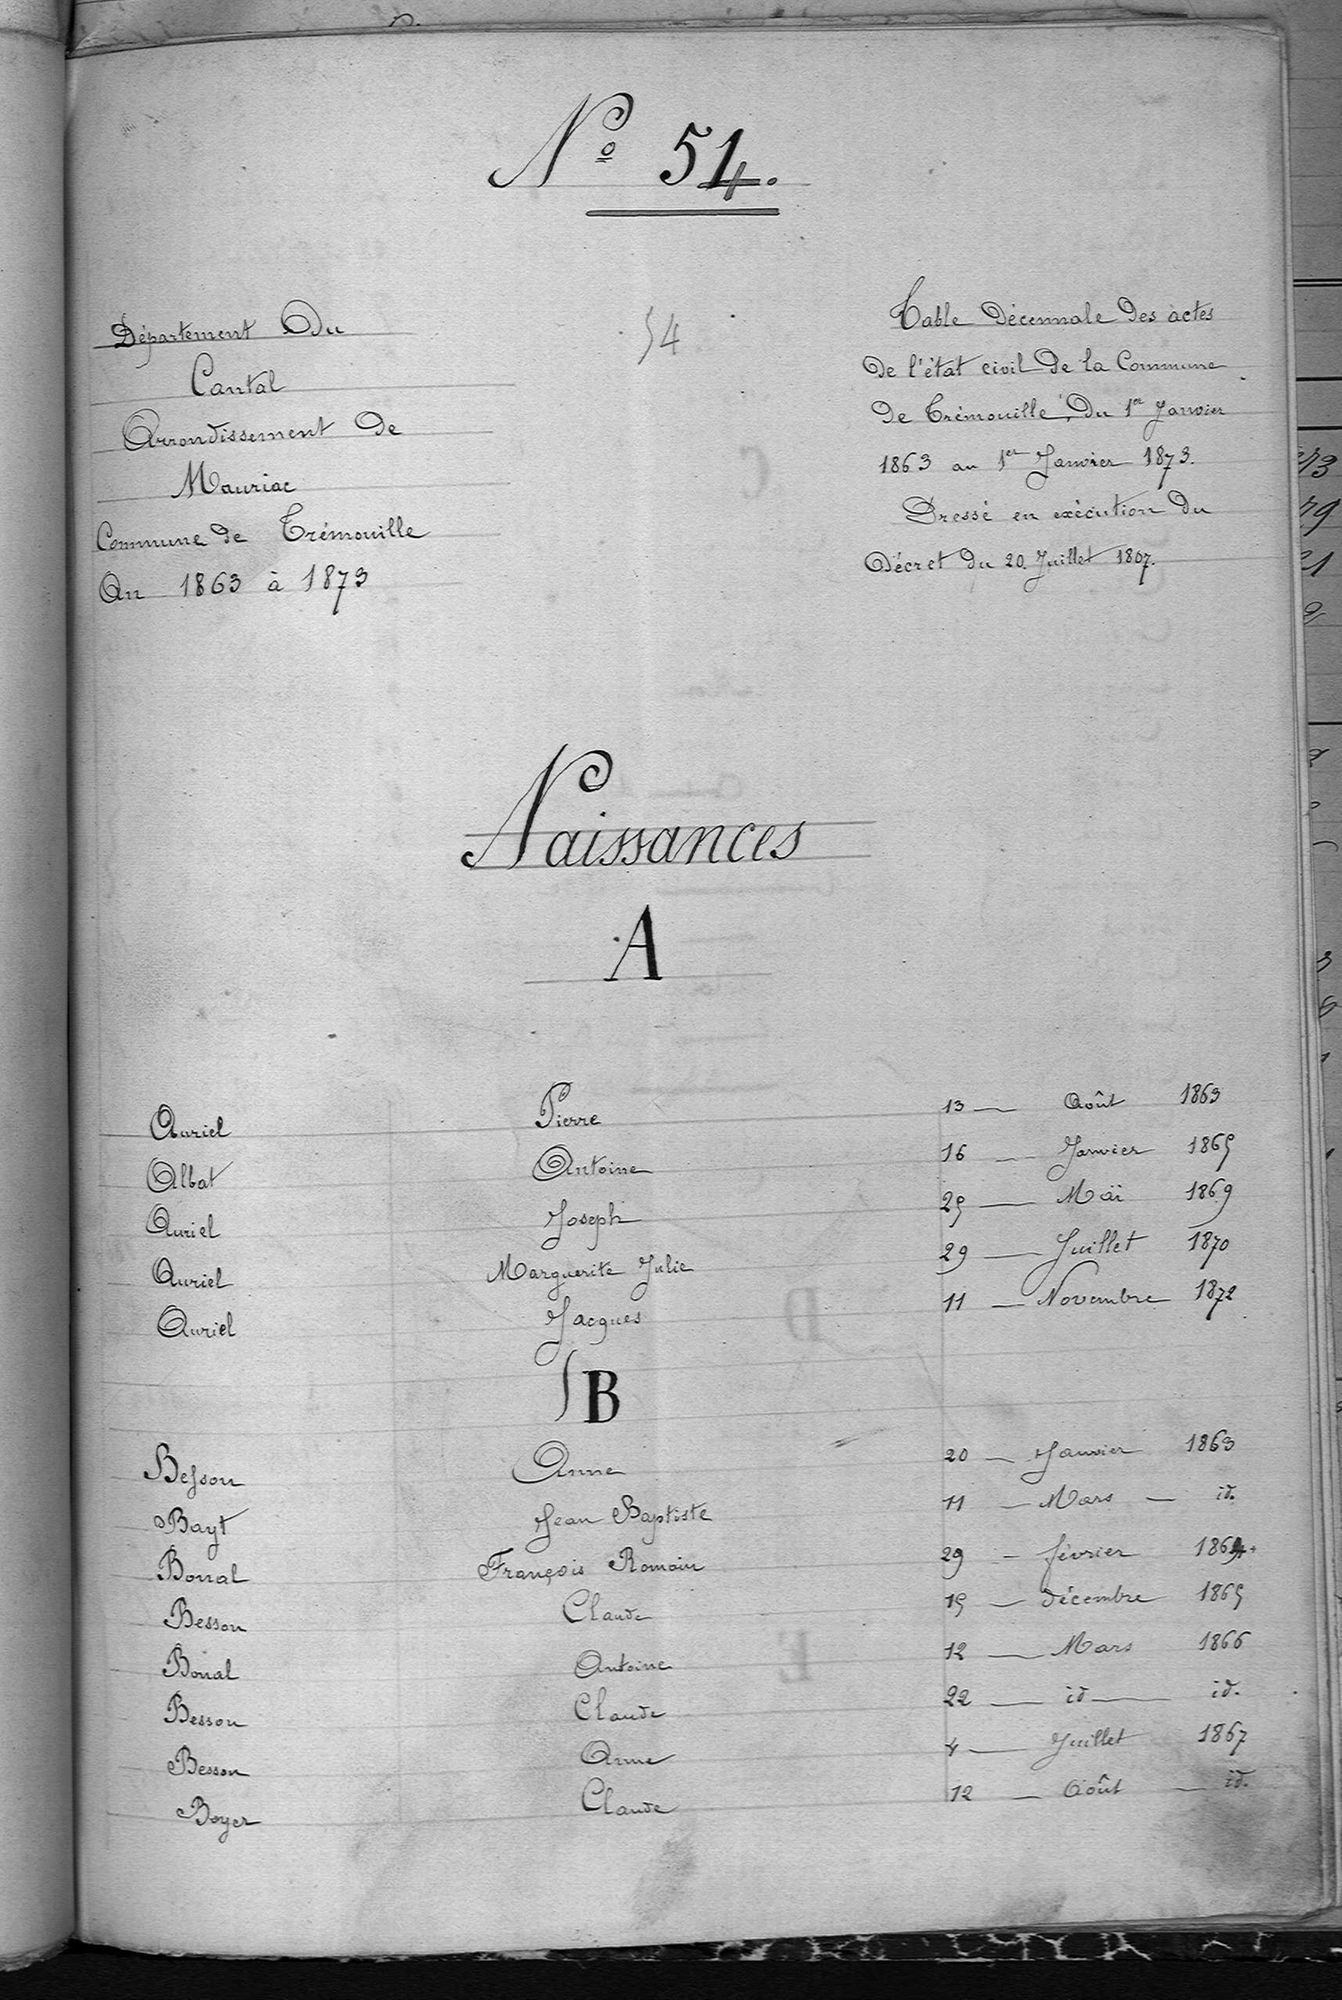 Nº 54.
54
Département Du
Cantal
Arrondissement de
Mauriac
Commune de Trémouille
An 1863 à 1873
Table Décennale des actes
De l'état civil De la Commune
De Trémouille, Du 1er Janvier
1863 au 1er Janvier 1873.
Dressé en exécution du
Décret du 20. Juillet 1807.
Naissances
A
Auriel Pierre 13 — Août 1863
Albat Antoine 16 — Janvier 1865
Auriel Joseph 25 — Maï 1869
Auriel Marguerite Julie 29 — Juillet 1870
Auriel Jacques 11 — Novembre 1872
B
Besson Anne 20 — Janvier 1863
Bayt Jean Baptiste 11 — Mars — id.
Bonal François Romain 29 — février 1864
Besson Claude 15 — décembre 1865
Bonal Antoine 12 — Mars 1866
Besson Claude 22 — id — id.
Besson Anne 4 — Juillet 1867
Boyer Claude 12 — Août — id.